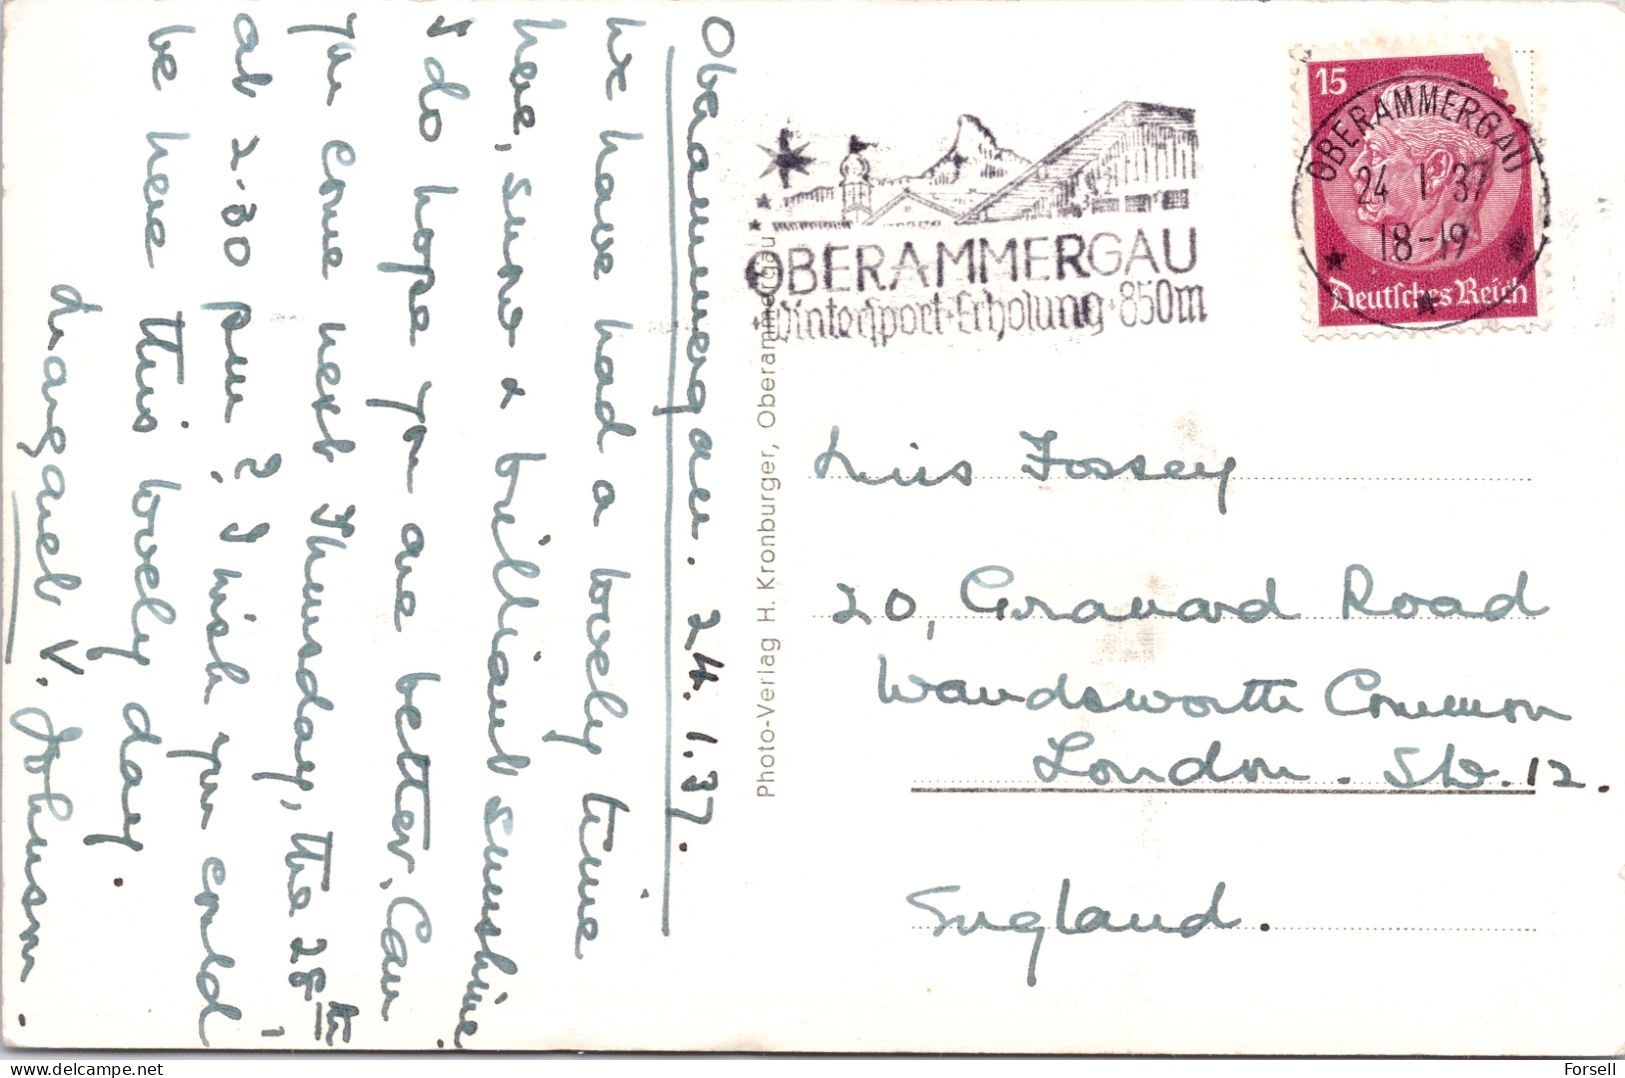 Oberammergau. 24.1.37.
We have had a lovely time
here, snow & brilliant sunshine
I do hope you are better, Can
you come next Thursday, the 28th,
at 2.30 pm? I wish you could
be here this lovely day.
Margaret V. Johnson.
Photo-Verlag H. Kronburger, Oberammergau
OBERAMMERGAU
Wintersport+Erholung+850m
15
OBERAMMERGAU
24 1 37
18-19
Deutsches Reich
Miss Fossey
20, Gravard Road
Wandsworth Common
London. SW. 12.
England.
Forsell